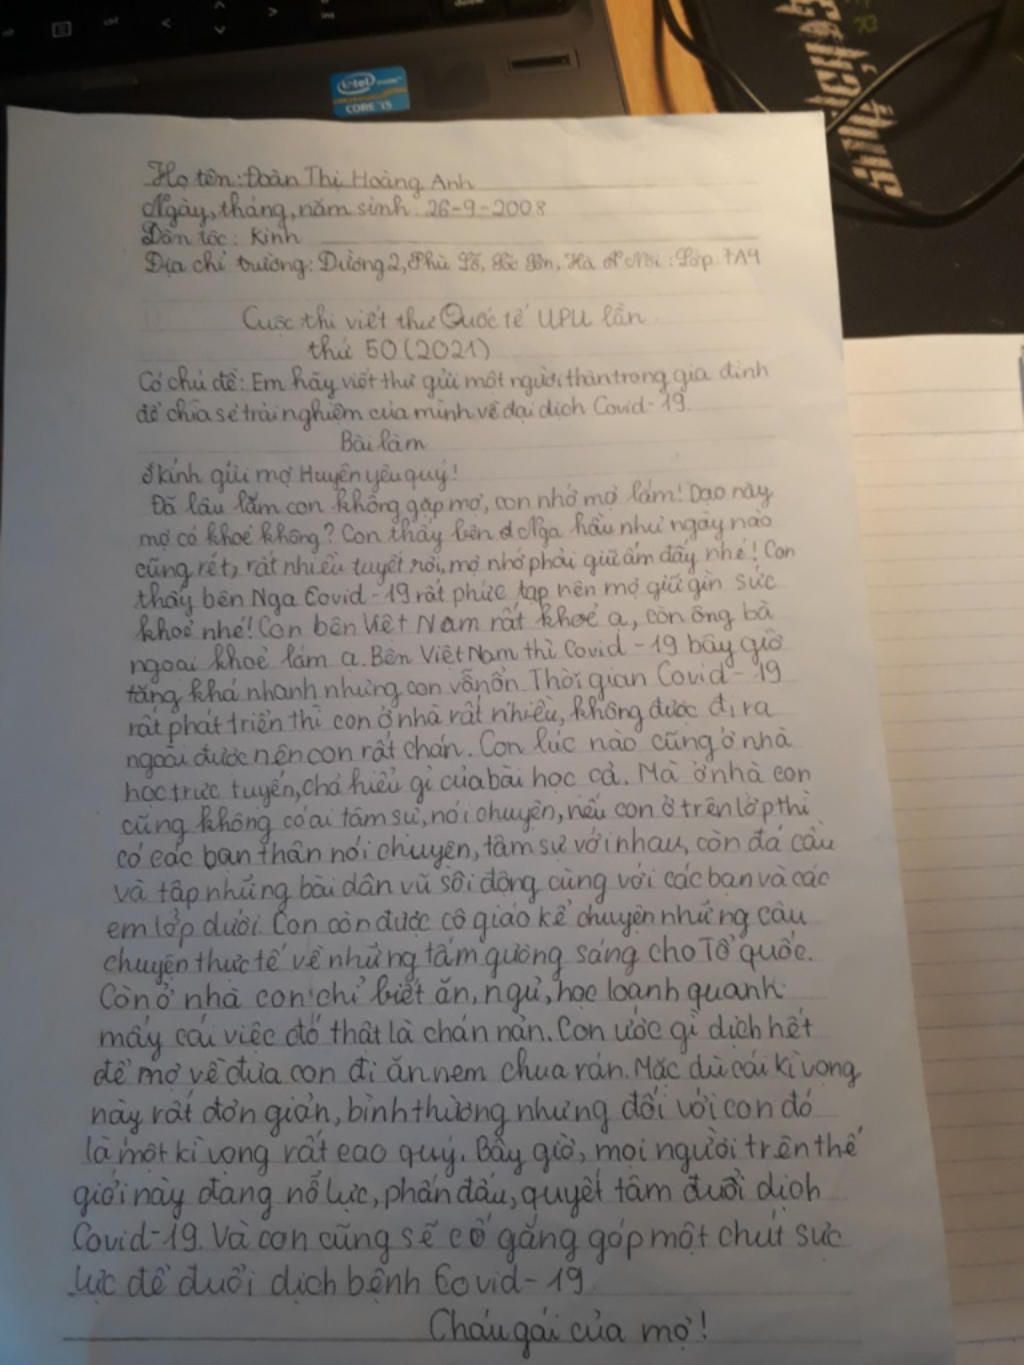 ctrl
ins
intel
CORE i5
Họ tên: Đoàn Thị Hoàng Anh
Ngày, tháng, năm sinh: 26-9-2008
Dân tộc: Kinh
Địa chỉ trường: Dương 2, Phù Lỗ, Sóc Sơn, Hà Nội: Lớp 7A4
Cuộc thi viết thư Quốc tế UPU lần
thứ 50 (2021)
Có chủ đề: Em hãy viết thư gửi một người thân trong gia đình
để chia sẻ trải nghiệm của mình về đại dịch Covid-19.
Bài làm
Kính gửi mợ Huyền yêu quý!
Đã lâu lắm con không gặp mợ, con nhớ mợ lắm! Dạo này
mợ có khoẻ không? Con thấy bên Nga hầu như ngày nào
cũng rét, rất nhiều tuyết rơi, mợ nhớ phải giữ ấm đấy nhé! Con
thấy bên Nga Covid-19 rất phức tạp nên mợ giữ gìn sức
khoẻ nhé! Con bên Việt Nam rất khoẻ ạ, còn ông bà
ngoại khoẻ lắm ạ. Bên Việt Nam thì Covid-19 bây giờ
tăng khá nhanh nhưng con vẫn ổn. Thời gian Covid-19
rất phát triển thì con ở nhà rất nhiều, không được đi ra
ngoài được nên con rất chán. Con lúc nào cũng ở nhà
học trực tuyến, chả hiểu gì của bài học cả. Mà ở nhà con
cũng không có ai tâm sự, nói chuyện, nếu con ở trên lớp thì
có các bạn thân nói chuyện, tâm sự với nhau, còn đá cầu
và tập những bài dân vũ sôi động cùng với các bạn và các
em lớp dưới. Con còn được cô giáo kể chuyện những câu
chuyện thực tế về những tấm gương sáng cho Tổ quốc.
Còn ở nhà con chỉ biết ăn, ngủ, học loanh quanh
mấy cái việc đó thật là chán nản. Con ước gì dịch hết
để mợ về đưa con đi ăn nem chua rán. Mặc dù cái kì vọng
này rất đơn giản, bình thường nhưng đối với con đó
là một kì vọng rất cao quý. Bây giờ, mọi người trên thế
giới này đang nỗ lực, phấn đấu, quyết tâm đuổi dịch
Covid-19. Và con cũng sẽ cố gắng góp một chút sức
lực để đuổi dịch bệnh Covid-19.
Cháu gái của mợ!